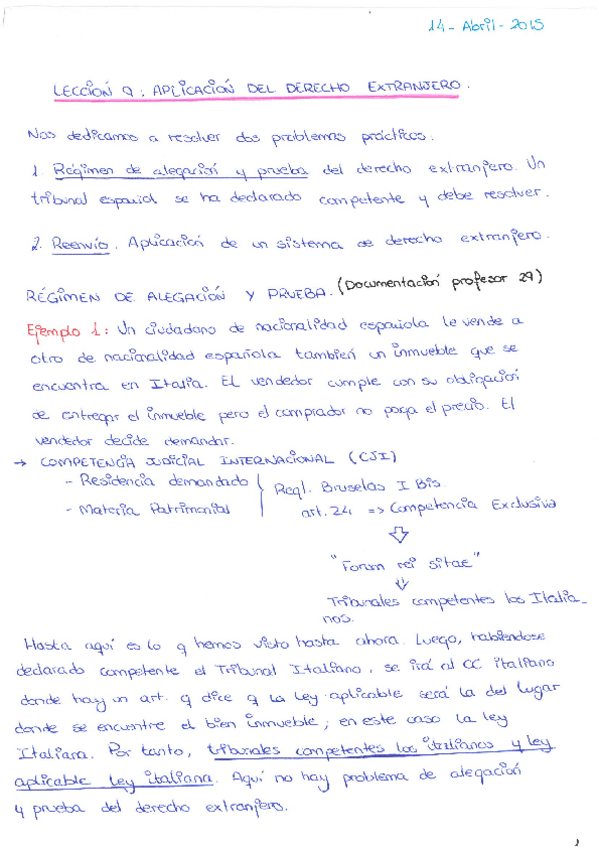 14 - Abril - 2015
LECCIÓN 9: APLICACIÓN DEL DERECHO EXTRANJERO.
Nos dedicamos a resolver dos problemas prácticos:
1. Régimen de alegación y prueba del derecho extranjero. Un
tribunal español se ha declarado competente y debe resolver.
2. Reenvío. Aplicación de un sistema de derecho extranjero.
RÉGIMEN DE ALEGACIÓN Y PRUEBA. (Documentación profesor 29)
Ejemplo 1: Un ciudadano de nacionalidad española le vende a
otro de nacionalidad española también un inmueble que se
encuentra en Italia. El vendedor cumple con su obligación
de entregar el inmueble pero el comprador no paga el precio. El
vendedor decide demandar.
→ COMPETENCIA JUDICIAL INTERNACIONAL (CJI)
- Residencia demandado
- Materia Patrimonial
Regl. Bruselas I Bis.
art. 24 => Competencia Exclusiva
"Forum rei sitae"
Tribunales competentes los Italia_
nos.
Hasta aquí es lo q hemos visto hasta ahora. Luego, habiéndose
declarado competente el Tribunal Italiano, se irá al CC italiano
donde hay un art. q dice q la ley aplicable será la del lugar
donde se encuentre el bien inmueble; en este caso la ley
Italiana. Por tanto, tribunales competentes los italianos y ley
aplicable ley italiana. Aquí no hay problema de alegación
y prueba del derecho extranjero.